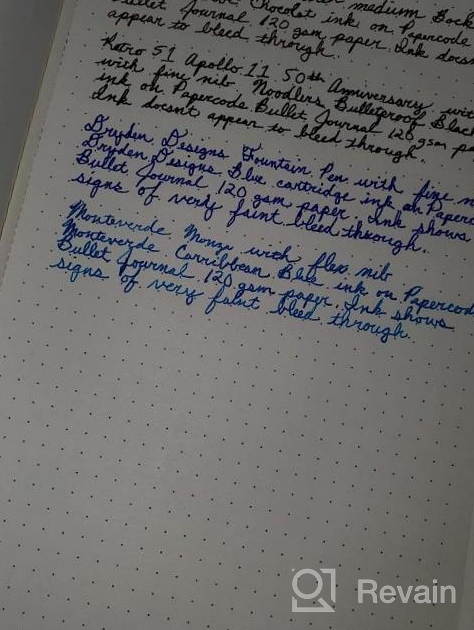 medium Bock
Chocolat ink on Papercode
Bullet Journal 120 gsm paper. Ink doesn
appear to bleed through.
Retro 51 Apollo 11 50th Anniversary wit
with fine nib Noodlers Bulletproof Blac
ink on Papercode Bullet Journal 120 gsm pa
Ink doesnt appear to bleed through
Dryden Designs Fountain Pen with fine n
Dryden Designs Blue cartridge ink on Paperc
Bullet Journal 120 gsm paper. Ink shows
signs of very faint bleed through.
Monteverde Monza with flex nib
Monteverde Carribbean Blue ink on Papercod
Bullet Journal 120 gsm paper. Ink shows
signs of very faint bleed through.
Revain